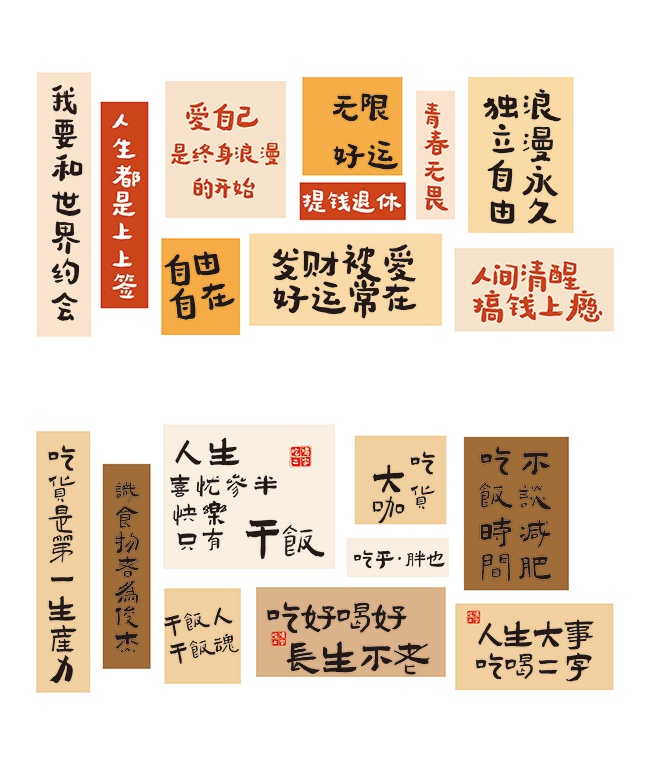 我要和世界约会
人生都是上上签
愛自己
是终身浪漫
的开始
无限
好运
提钱退休
青春无畏
独立自由
浪漫永久
自由
自在
发财被爱
好运常在
人间清醒
搞钱上瘾
吃貨是第一生産力
識食物者為俊杰
人生
喜忧參半
快樂
只有
干飯
吃貨
大咖
吃乎·胖也
吃飯時間
不談減肥
干飯人
干飯魂
吃好喝好
長生不老
人生大事
吃喝二字